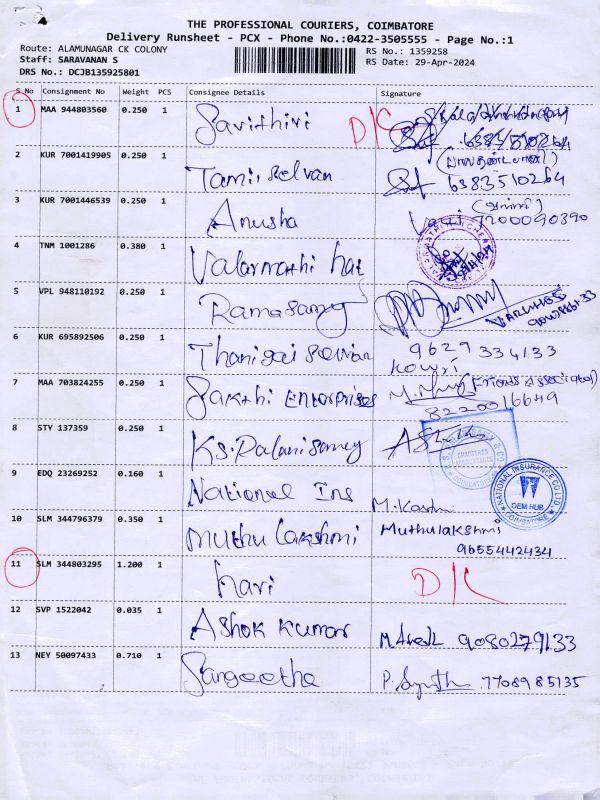 THE PROFESSIONAL COURIERS, COIMBATORE
Delivery Runsheet - PCX - Phone No.:0422-3505555 - Page No.:1
Route: ALAMUNAGAR CK COLONY
Staff: SARAVANAN S
DRS No.: DCJB135925801
RS No.: 1359258
RS Date: 29-Apr-2024
S No Consignment No Weight PCS Consignee Details Signature
1 MAA 944803560 0.250 1 Savithiri D/C
6383510264
2 KUR 7001419905 0.250 1 Tamil Selvan 6383510264
3 KUR 7001446539 0.250 1 Anusha 7200090390
4 TNM 1001286 0.380 1 Valarmathi
5 VPL 948110192 0.250 1 Ramasamy
6 KUR 695892506 0.250 1 Thanigai Selvan 9629 334133
Kowri
7 MAA 703824255 0.250 1 Sakthi Enterprises
8220016649
8 STY 137359 0.250 1 Ks. Palanisamy
CHARTERED ACCOUNTANTS
COIMBATORE
9 EDQ 23269252 0.160 1 National Ins
NATIONAL INSURANCE CO.LTD
OEM HUB
COIMBATORE
10 SLM 344796379 0.350 1 Muthu Lakshmi Muthulakshmi
9655442434
11 SLM 344803295 1.200 1 hari D/C
12 SVP 1522042 0.035 1 Ashok Kumar 9080279133
13 NEY 50097433 0.710 1 Sangeetha 7708985135